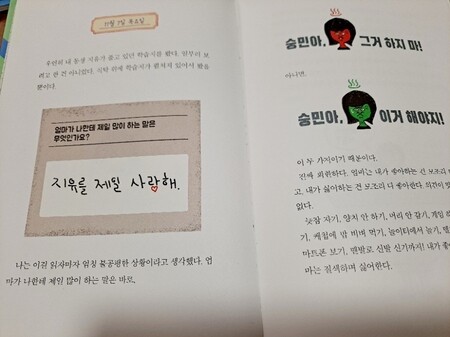 11월 7일 목요일
우연히 내 동생 지유가 풀고 있던 학습지를 봤다. 일부러 보
려고 한 건 아니었다. 식탁 위에 학습지가 펼쳐져 있어서 봤을
뿐이다.
엄마가 나한테 제일 많이 하는 말은
무엇인가요?
지유를 제일 사랑해.
나는 이걸 읽자마자 엄청 불공평한 상황이라고 생각했다. 엄
마가 나한테 제일 많이 하는 말은 바로,
승민아, 그거 하지 마!
아니면,
승민아, 이거 해야지!
이 두 가지이기 때문이다.
진짜 희한하다. 엄마는 내가 좋아하는 건 모조리
고, 내가 싫어하는 건 모조리 다 좋아한다. 의견이 맞
없다.
늦잠 자기, 양치 안 하기, 머리 안 감기, 게임
기, 케첩에 밥 비벼 먹기, 놀이터에서 놀기,
마트폰 보기, 맨발로 신발 신기까지! 내가 좋
마는 질색하며 싫어한다.